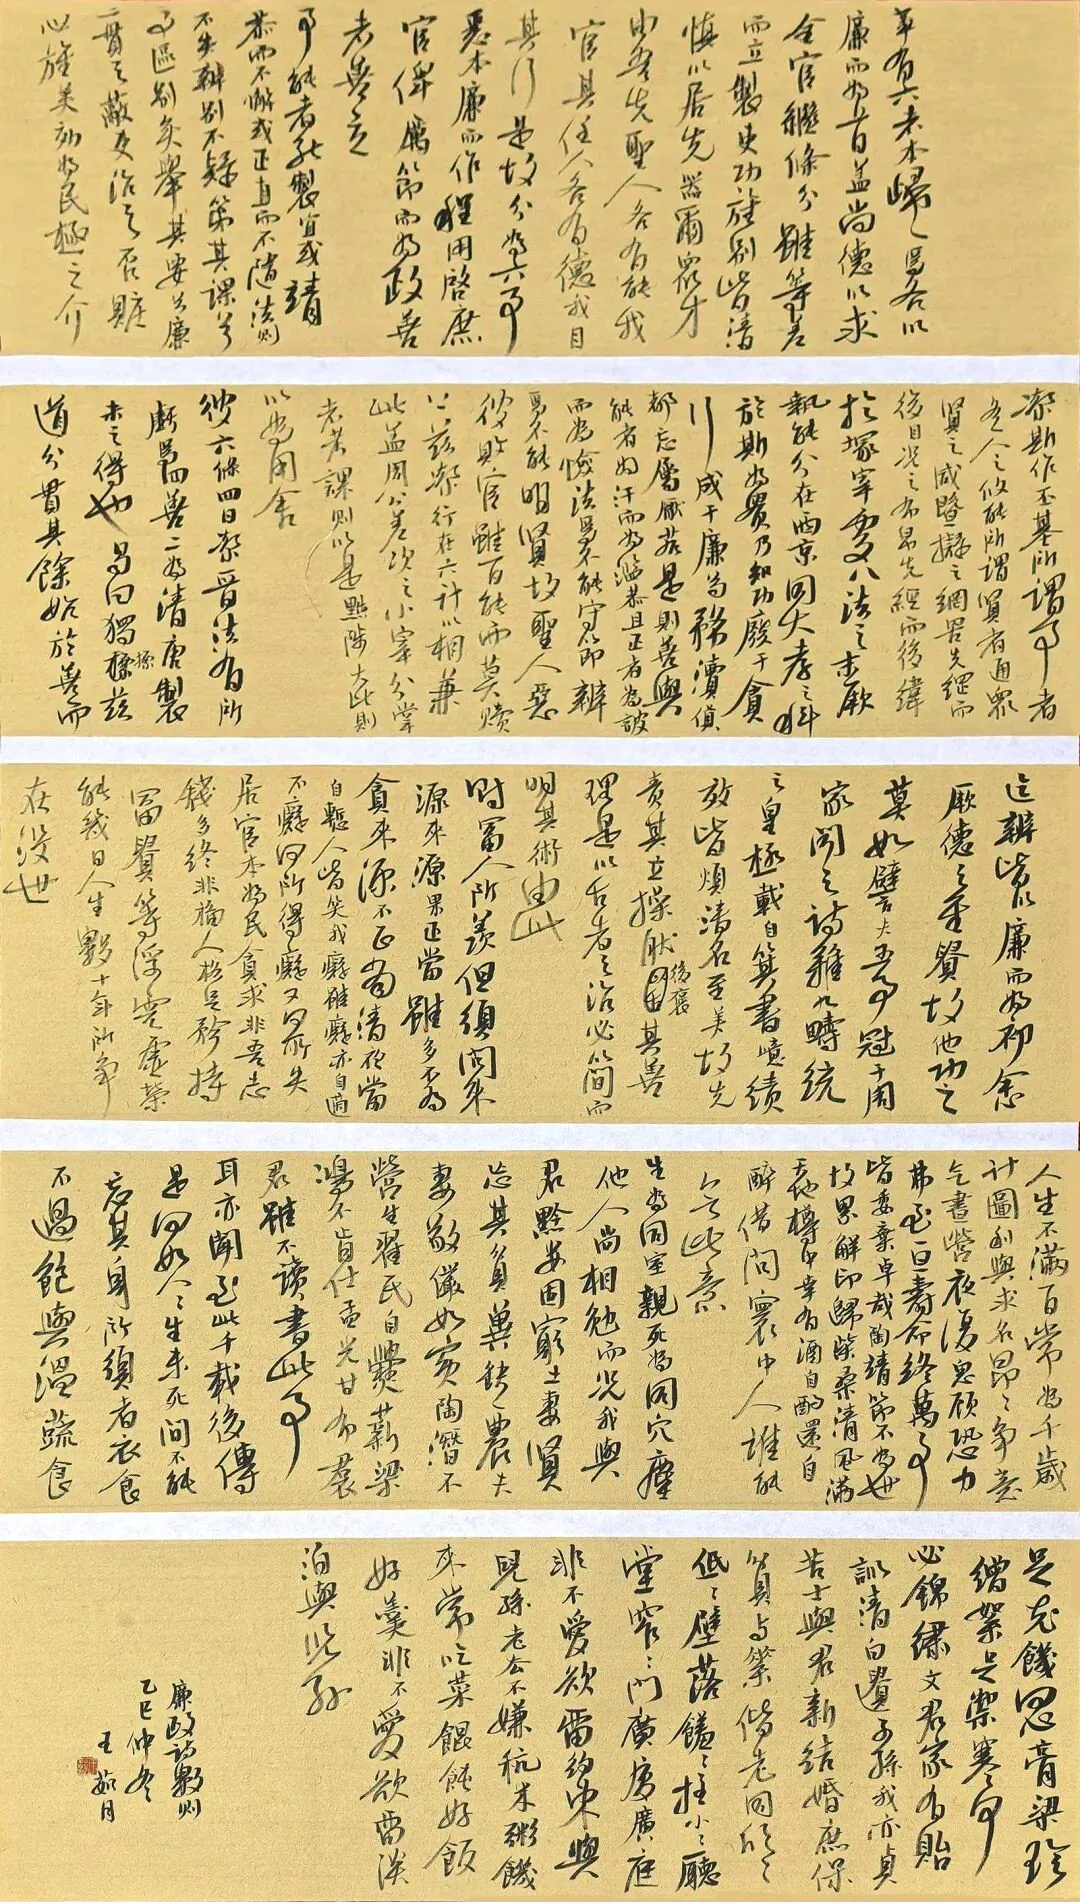 事有六者本歸一焉各以
廉而為首蓋尚德以求
全官繼條分雖等差
而立製吏功旌別皆清
慎以居先器爾眾才
由吾先聖人各有能我
官其任人各有德我目
其行是故分為六事
悉本廉而作程用啓庶
官俾厲節而為政善
者善立
事能者能製宜或靖
恭而不懈或正直而不隨法則
不失辨別不疑第其課兮
事區別矣舉其要兮廉
一貫之蔽吏治之否臧
必旌美效為民極之介
潔斯作丕基所謂事者
各一人之攸能所謂賢者通眾
賢之咸暨擬之網罟先綱而
後目況之布帛先經而後緯
於冢宰處八法之末厥
執能分在西京同大孝之科
於斯為貴乃知功廢于貪
行成于廉苟務瀆貨
都忘厲厭若是則善與
能者為汗而為濫恭且正者為詖
而為憸法焉不能守節辨
焉不能明賢故聖人惡
彼敗官雖百能而莫贖
上茲察行在六計以相兼
此蓋周公差次之小宰分掌
考課則以是黜陟大比則
以為用舍
彼六條四曰察晉法有所
虧焉四善二為清唐製
未之得也曷曰獨標茲
道分貫其餘始於善而
迄辨皆以廉而為初念
厥德之至賢故他功之
莫如譬夫五事冠于周
家聞之詩雅九疇統
之皇極載自箕書噫績
效皆煩清名至美故先
責其立操然後褒其善
理是以古者之治必簡而
明其術由此
財富人所羨但須問來
源來源果正當雖多不為
貪來源不正當清夜當
自慙人皆笑我癡雖癡亦自適
不癡何所得癡又何所失
居官本為民貪求非吾志
錢多終非福人格足矜持
富貴等浮雲虛榮
能幾日人生數十年所爭
在沒世
人生不滿百常為千歲
計圖利與求名昂昂爭意
氣晝營夜復思顧恐力
弗至一旦壽命終萬事
皆委棄卓哉陶靖節不為世
故累解印歸柴桑清風滿
天地樽中幸有酒自酌還自
醉借問寰中人誰能
會此意
生為同室親死為同穴塵
他人尚相勉而況我與
君黔婁固窮士妻賢
忘其貧冀缺一農夫
妻敬儼如賓陶潛不
營生翟氏自爨薪梁
鴻不肯仕孟光甘布裙
君雖不讀書此事
耳亦聞至此千載後傳
是何如人人生未死間不能
忘其身所須者衣食
不過飽與溫蔬食
足充饑何必膏粱珍
繒絮足禦寒何
必錦繡文君家有貽
訓清白遺子孫我亦貞
苦士與君新結婚庶保
貧與素偕老同欣欣
低低壁落鎚鎚柱小小廳
堂窄窄門廣廈廣庭
非不愛欲留約束與
兒孫老去不嫌秔米粥饑
來常吃菜餛飩好飯
好羹非不愛欲留淡
泊與兒孙
廉政詩數則
乙巳仲冬
王茹月